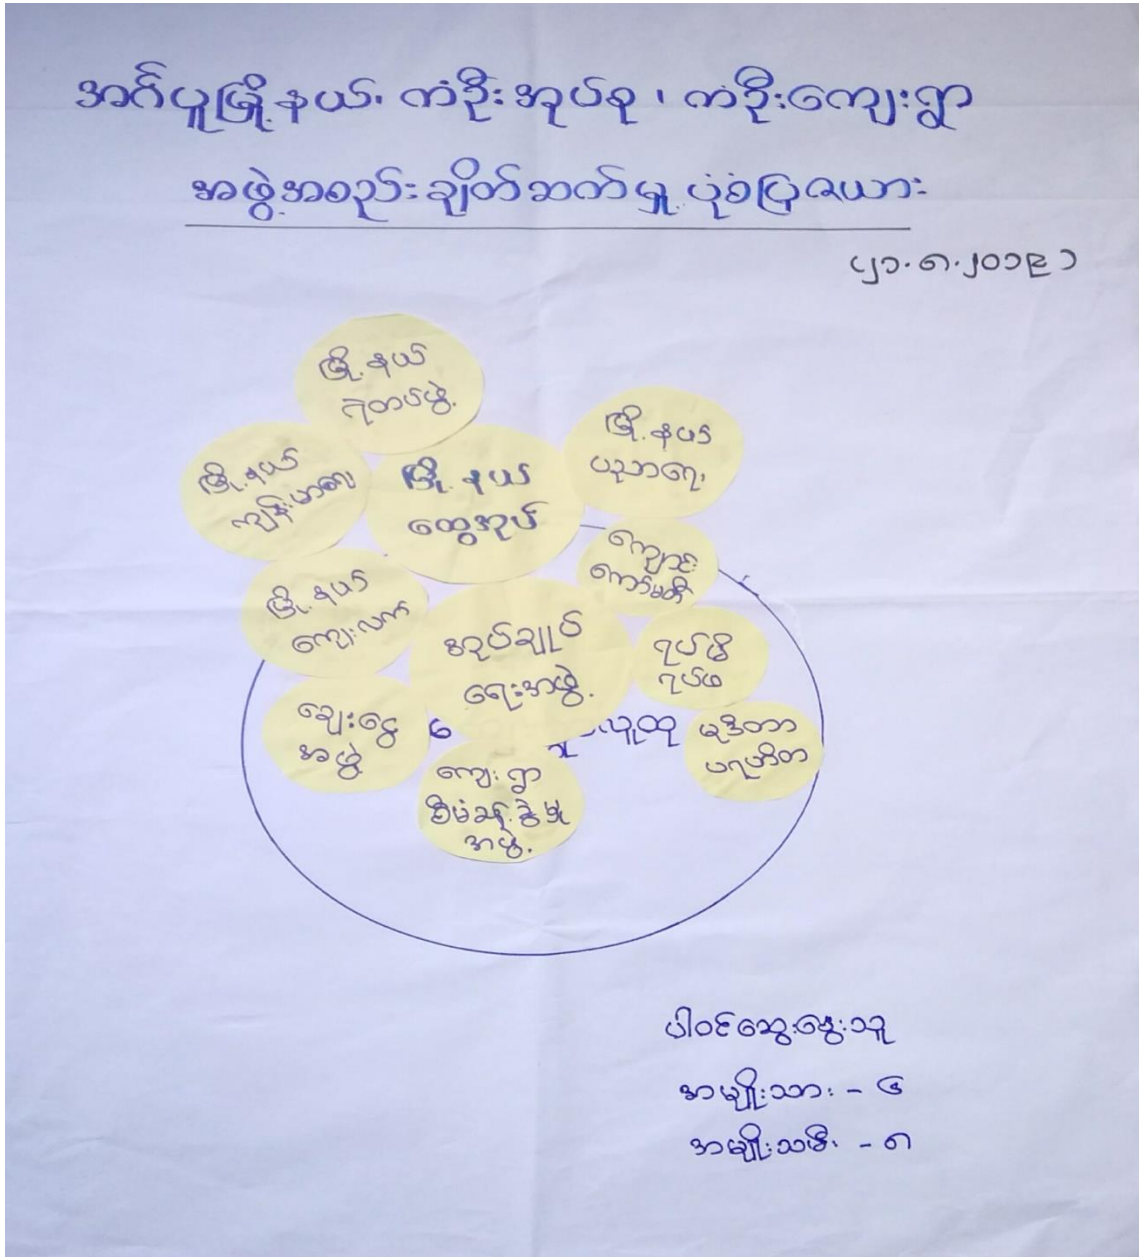 အင်ပူမြို့နယ်၊ ကံဦးအုပ်စု၊ ကံဦးကျေးရွာ
အဖွဲ့အစည်းချိတ်ဆက်မှု ပုံစံပြဇယား
(၂၁.၈.၂၀၁၉)
မြို့နယ်
ရဲတပ်ဖွဲ့
မြို့နယ်
ကျန်းမာရေး
မြို့နယ်
ထွေအုပ်
မြို့နယ်
ပညာရေး
ကျောင်း
ကော်မတီ
မြို့နယ်
ကျေးလက်
အုပ်ချုပ်
ရေးအဖွဲ့
ရပ်မိ
ရပ်ဖ
ချေးငွေ
အဖွဲ့
လူထု
မုဒိတာ
ပရဟိတ
ကျေးရွာ
စီမံခန့်ခွဲမှု
အဖွဲ့
ပါဝင်ဆွေးနွေးသူ
အမျိုးသား - ၆
အမျိုးသမီး - ၈